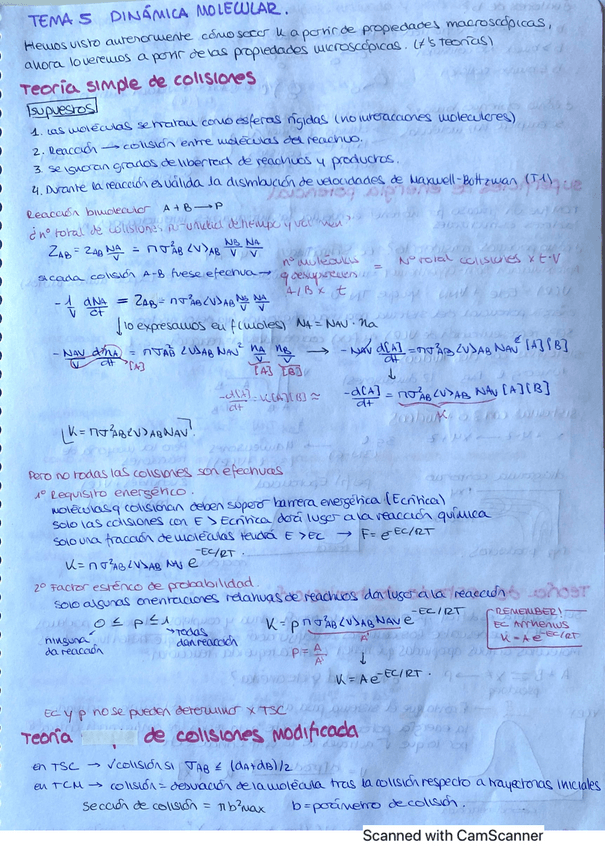 TEMA 5 DINÁMICA MOLECULAR.
Hemos visto anteriormente cómo sacar k a partir de propiedades macroscópicas,
ahora lo veremos a partir de las propiedades microscópicas. (4's Teorías)
Teoría simple de colisiones
Supuestos
1. Las moléculas se tratan como esferas rígidas (no interacciones moleculares)
2. Reacción → colisión entre moléculas del reactivo.
3. Se ignoran grados de libertad de reactivos y productos.
4. Durante la reacción es válida la distribución de velocidades de Maxwell-Boltzman (T1)
Reacción bimolecular A + B → P
¿nº total de colisiones, unidad de tiempo y volumen?
Z_AB = z_AB N_A/V = πσ²_AB <V>_AB N_B/V N_A/V
si cada colisión A-B fuese efectiva → nº moléculas q desaparecen A/B x t = Nº total colisiones x t·V
- 1/V dN_A/dt = Z_AB = πσ²_AB <V>_AB N_B/V N_A/V
↓ lo expresamos en f(moles) N_A = N_AV · n_A
- N_AV/V dn_A/dt [A] = πσ²_AB <V>_AB N_AV² n_A/V [A] n_B/V [B] → - N_AV d[A]/dt = πσ²_AB <V>_AB N_AV² [A][B]
↓
-d[A]/dt = K[A][B] ≈ -d[A]/dt = πσ²_AB <V>_AB N_AV [A][B]
K
K = πσ²_AB <V>_AB N_AV
Pero no todas las colisiones son efectivas
1º Requisito energético.
moléculas q colisionan deben superar barrera energética (Ecrítica)
solo las colisiones con E > Ecrítica dará lugar a la reacción química
solo una fracción de moléculas tendrá E > EC → F = e^-EC/RT
K = πσ²_AB <V>_AB N_AV e^-EC/RT.
2º Factor estérico de probabilidad.
solo algunas orientaciones relativas de reactivos dan lugar a la reacción
0 ≤ p ≤ 1
ninguna da reacción
todas dan reacción
K = p πσ²_AB <V>_AB N_AV e^-EC/RT
A'
P = A/A'
↓
K = A e^-EC/RT.
REMEMBER!
EC Arrhenius
K = A e^-EC/RT
EC y p no se pueden determinar x TSC
Teoría de colisiones modificada
en TSC → √ colisión si σ_AB ≤ (dA+dB)/2
en TCM → colisión = desviación de la molécula tras la colisión respecto a trayectorias iniciales
sección de colisión = πb²max b = parámetro de colisión.
Scanned with CamScanner